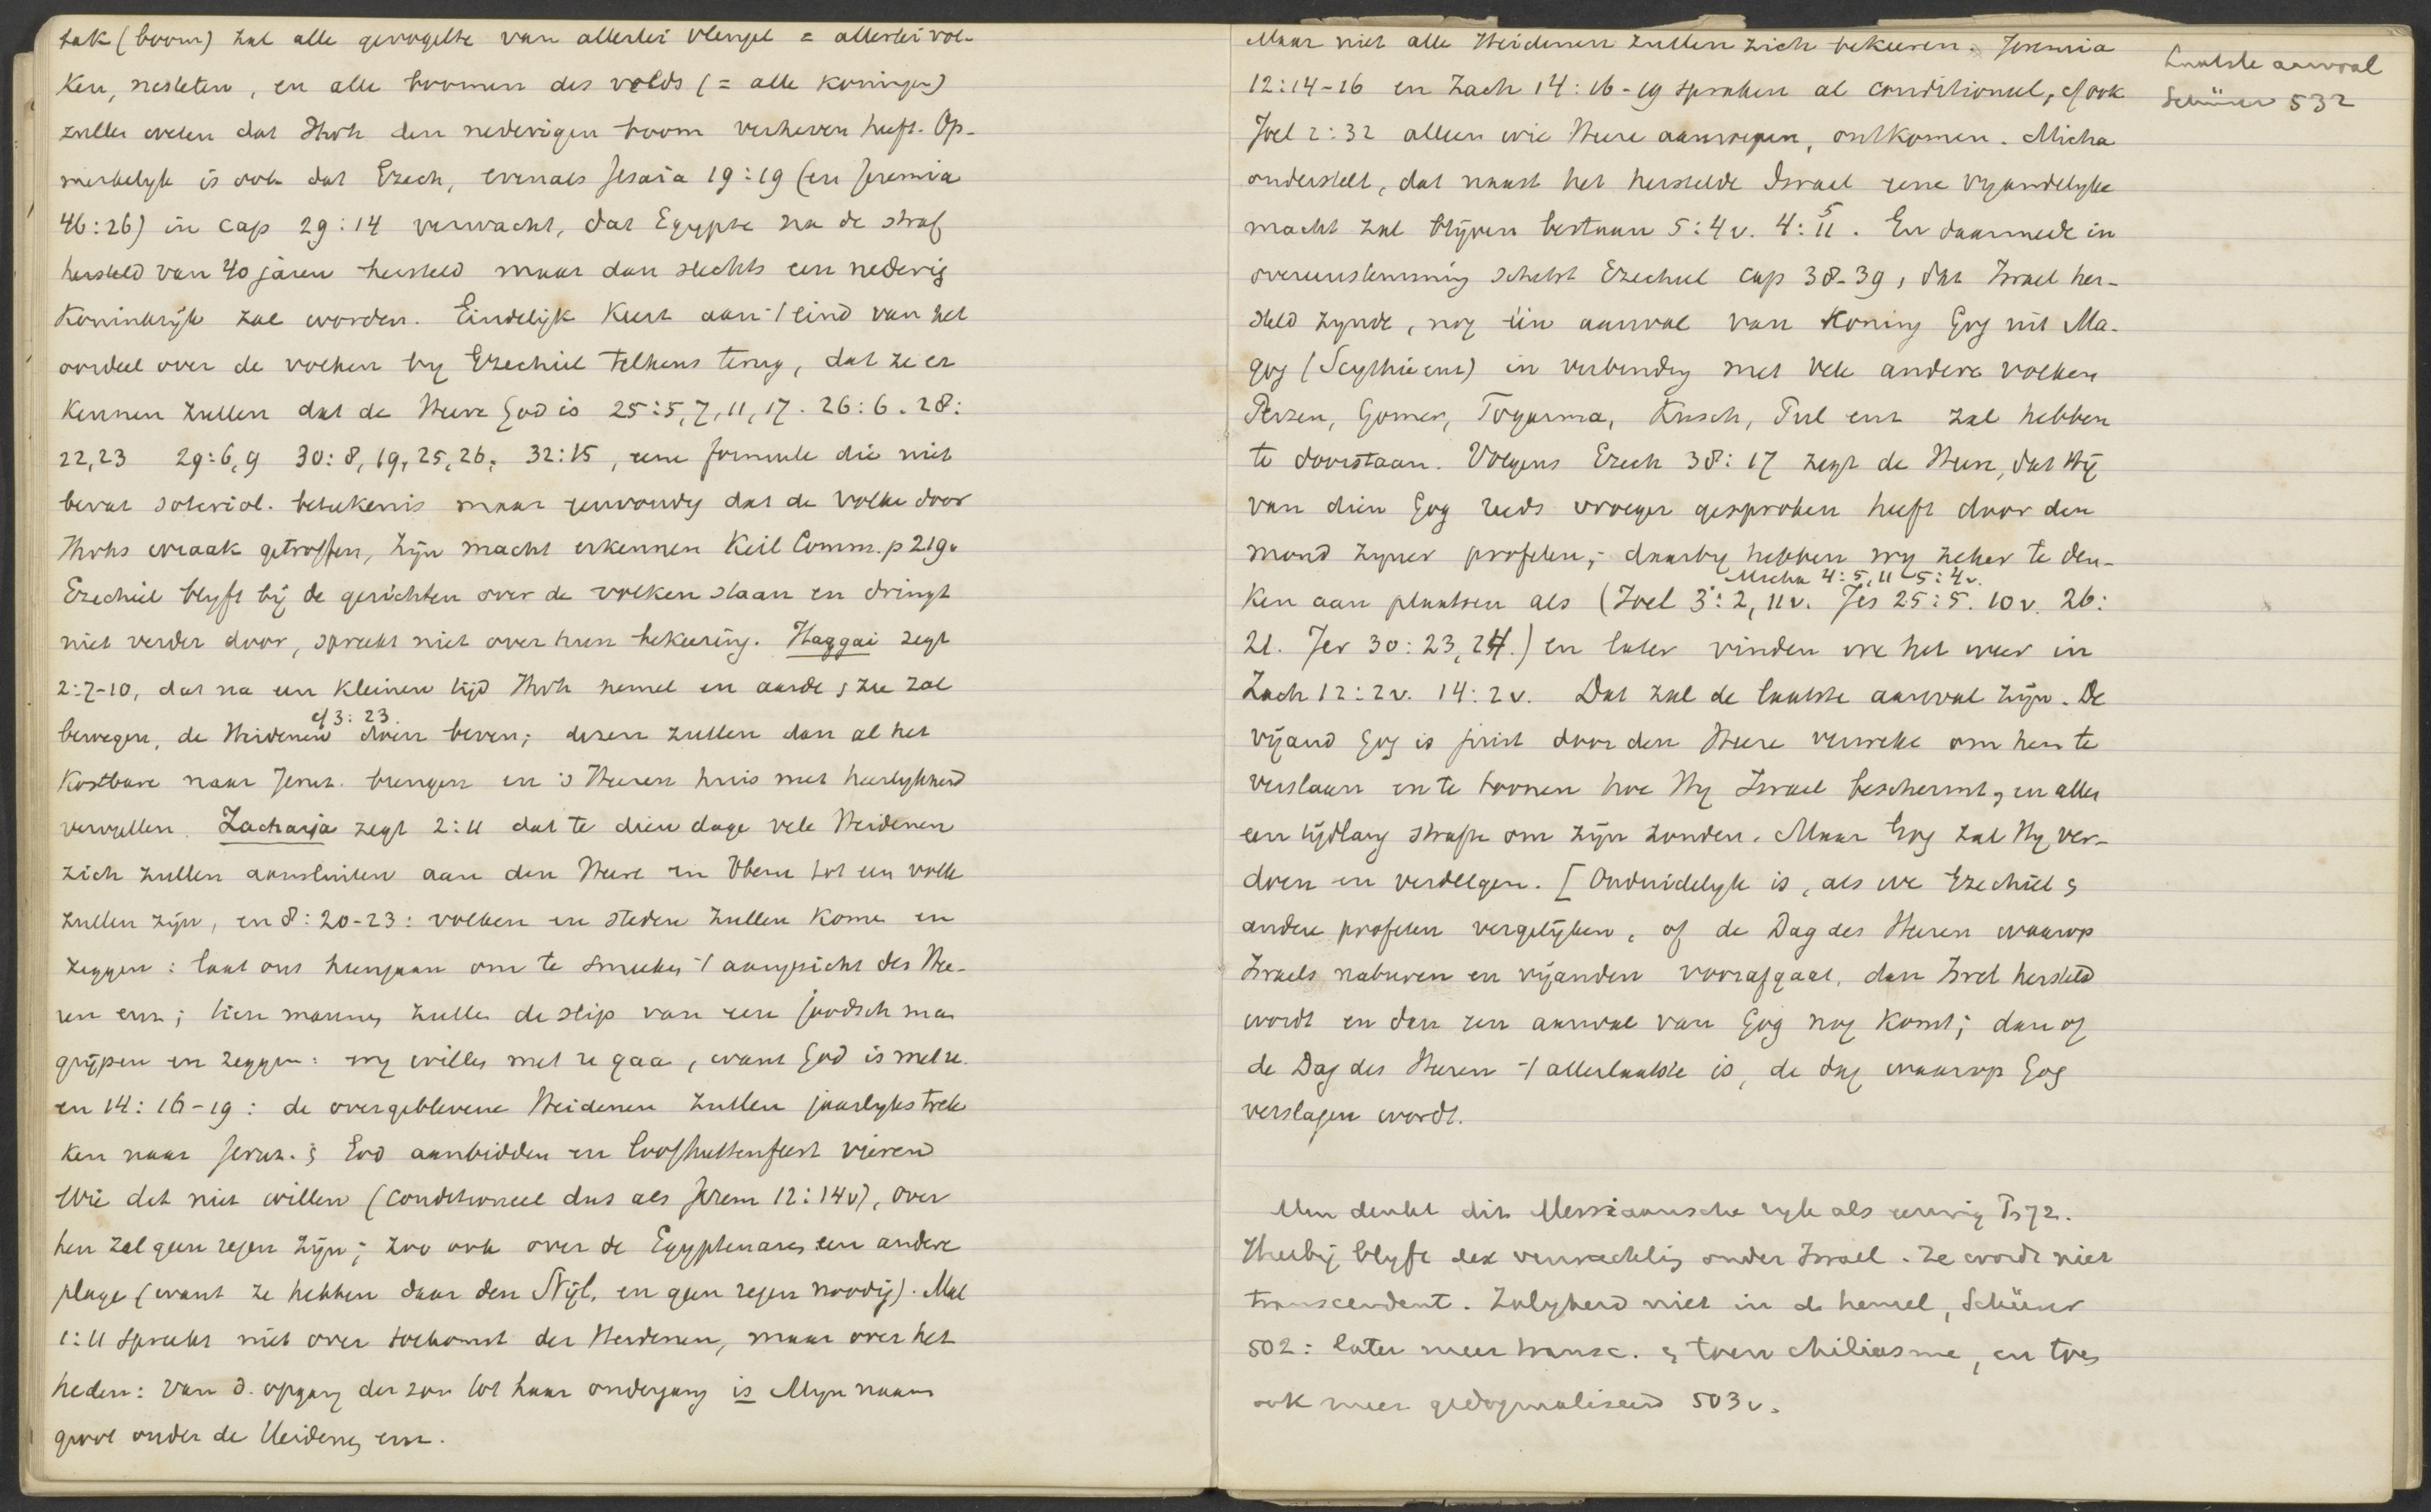 tak (boom) zal alle gevogelte van allerlei vleugel = allerlei vol-
ken, nestelen, en alle boomen des velds (= alle koningen)
zullen weten dat Jhvh den nederigen boom verheven heeft. Op-
merkelyk is ook dat Ezech, evenals Jesaia 19:19 (en Jeremia
46:26) in cap 29:14 verwacht, dat Egypte na de straf
hersteld van 40 jaren hersteld maar dan slechts een nederig
Koninkrijk zal worden. Eindelijk keert aan 't eind van het
oordeel over de volken by Ezechiel telkens terug, dat ze er
kennen zullen dat de Heere God is 25:5,7,11,17. 26:6. 28:
22,23 29:6,9 30:8,19,25,26, 32:15, eene formule die niet
bevat soteriol. betekenis maar eenvoudig dat de volken door
Jhvhs wraak getroffen, zijn macht erkennen Keil Comm. p 219.
Ezechiel blyft bij de gerichten over de volken staan en dringt
niet verder door, spreekt niet over hun bekeering. Haggai zegt
2:7-10, dat na een kleinen tijd Jhvh hemel en aarde, zee zal
cf 3:23.
bewegen, de Heidenen doen beven; dezen zullen dan al het
Kostbare naar Jeruz. brengen en 's Heeren huis met heerlykheid
vervullen. Zacharja zegt 2:11 dat te dien dage vele Heidenen
zich zullen aansluiten aan den Heere en Hem tot een volk
zullen zijn, en 8:20-23: volken en steden zullen komen en
zeggen: laat ons heengaan om te smeeken 't aangezicht des Hee-
ren enz; tien mannen zullen de slip van een joodsch man
grijpen en zeggen: wy willen met u gaan, want God is met u.
en 14:16-19: de overgeblevene Heidenen zullen jaarlyks trek
ken naar Jeruz. & God aanbidden en Loofhuttenfeest vieren
Wie dat niet willen (conditioneel dus als Jerem 12:14v), over
hen zal geen regen zijn; zoo ook over de Egyptenaren een andere
plage (want ze hebben daar den Nijl, en geen regen noodig). Mal
1:11 spreekt niet over toekomst der Heidenen, maar over het
heden: van d. opgang der zon tot haar ondergang is Mijn naam
groot onder de Heidenen enz.
Maar niet alle Heidenen zullen zich bekeeren. Jeremia
12:14-16 en Zach 14:16-19 spraken al conditioneel, cf ook
Joel 2:32 alleen wie Heere aanroepen, ontkomen. Micha
onderstelt, dat naast het herstelde Israel eene vyandelyke
macht zal blijven bestaan 5:4v. 4:5 11. En daarmede in
overeenstemming schetst Ezechiel cap 38-39, dat Israel her-
steld zynde, nog één aanval van Koning Gog uit Ma-
gog (Scythië enz) in verbinding met vele andere volken
Perzen, Gomer, Togarma, Kusch, Put enz zal hebben
te doorstaan. Volgens Ezech 38:17 zegt de Heere, dat Hij
van dien Gog reeds vroeger gesproken heeft door den
mond zyner profeten; daarby hebben wy zeker te den-
Micha 4:5,11 5:4v.
ken aan plaatsen als (Joel 3:2, 11v. Jes 25:5. 10v. 26:
21. Jer 30:23,24.) en later vinden we het weer in
Zach 12:2v. 14:2v. Dat zal de laatste aanval zijn. De
vijand Gog is juist door den Heere verwekt om hem te
verslaan en te toonen hoe Hy Israel beschermt, en alleen
een tijdlang strafte om zijn zonden. Maar Gog zal Hy ver-
doen en verdelgen. [Onduidelyk is, als we Ezechiel &
andere profeten vergelijken, of de Dag des Heeren waarop
Israels naburen en vijanden voorafgaat, dan Isrel hersteld
wordt en dan een aanval van Gog nog komt; dan of
de Dag des Heeren 't allerlaatste is, de dag waarop Gog
verslagen wordt.
Men denkt dit Messiaansche ryk als eeuwig Ps 72.
Hierbij blyft dex verwachting onder Israel. Ze wordt niet
transcendent. Zaligheid niet in de hemel, Schürer
502: later meer transc. & toen chiliasme, en toen
ook meer gedogmatiseerd 503v.
Laatste aanval
Schürer 532